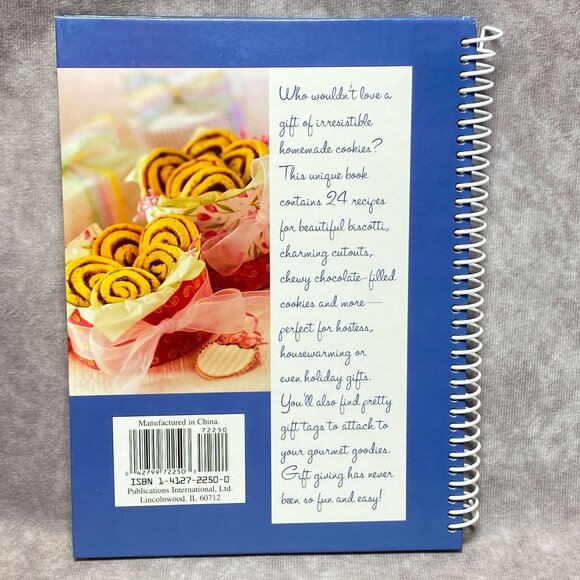 Who wouldn't love a
gift of irresistible
homemade cookies?
This unique book
contains 24 recipes
for beautiful biscotti,
charming cutouts,
chewy chocolate-filled
cookies and more—
perfect for hostess,
housewarming or
even holiday gifts.
You'll also find pretty
gift tags to attach to
your gourmet goodies.
Gift giving has never
been so fun and easy!
Manufactured in China.
72250
0 42799 72250 3
ISBN 1-4127-2250-0
Publications International, Ltd.
Lincolnwood, IL 60712